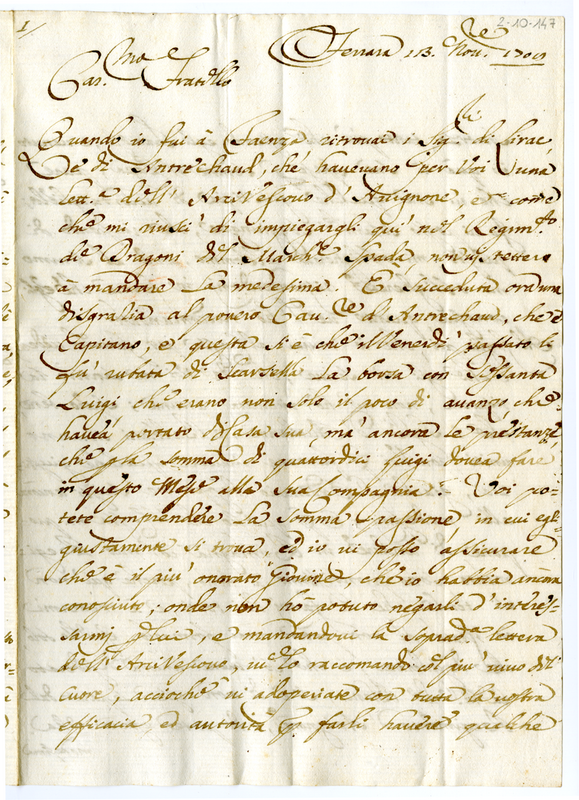 1/
2-10-147
Ferrara 13. Nov.re 1708
Car.mo Fratello
Quando io fui à Faenza ritrovai i Sig.ri di
e di Antrechaud, che havevano per Voi una
lett.a dell' ArciVescovo d'Avignone, e come
che mi riuscì di impiegargli quì nel Regim.to
de Dragoni del March.e Spada, non
a mandare la medesima. È succeduta ora una
disgrazia al povero Cav.re d'Antrechaud, che è
Capitano, e questa si è che Venerdì passato li
fù rubata di Scarsella la borsa con sessanta
Luigi che erano non solo il poco di avanzo che
havea portato di Casa sua, mà ancora le prestanze
che p la somma di quattordici luigi dovea fare
in questo Mese alla sua Compagnia. Voi po-
tete comprendere la somma passione in cui egli
giustamente si trova, ed io vi posso assicurare
che è il più onorato Giovine, che io habbia ancora
conosciuto; onde non hò potuto negarli d'interes-
sarmi p lui, e mandandovi la soprad.a lettera
dell' ArciVescovo, ve lo raccomando col più vivo del
Cuore, acciochè vi adoperiate con tutta la vostra
efficacia, ed autorità p farli havere qualche